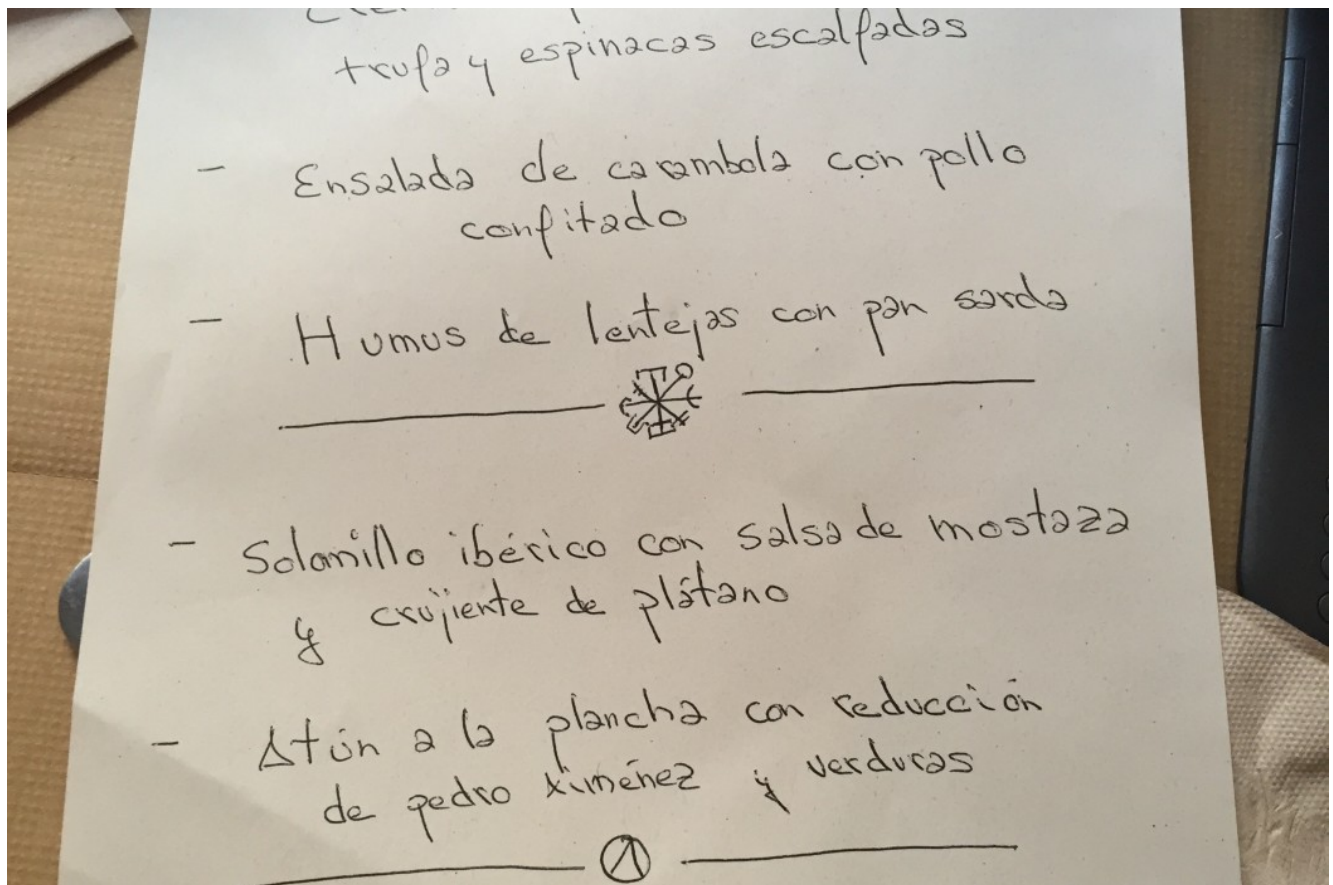 trufa y espinacas escalfadas
- Ensalada de carambola con pollo
confitado
- Humus de lentejas con pan sarda
- Solomillo ibérico con salsa de mostaza
y crujiente de plátano
- Atún a la plancha con reducción
de pedro ximénez y verduras